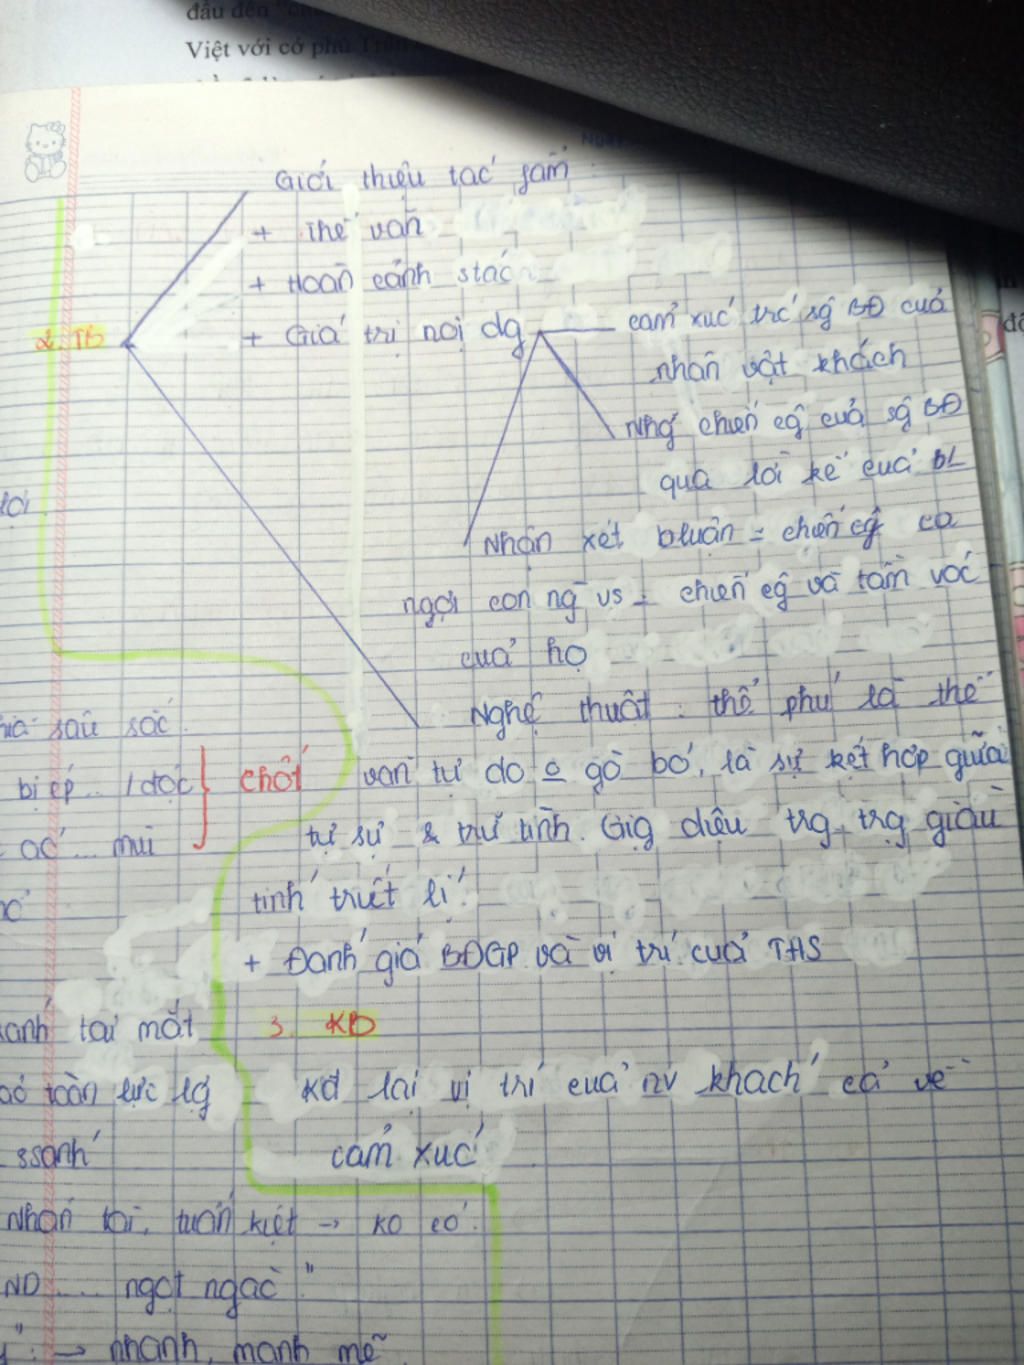 đầu đến
Việt với cố phủ
Giới thiệu tác fẩm
+ Thể văn
+ Hoàn cảnh stác
2. TB
+ Giá trị nội dg
cảm xúc trc sg BĐ của
nhân vật khách
Nhg chiến cg của sg BĐ
qua lời kể của BL
Nhận xét bluận = chiến cg ca
ngợi con ng vs = chiến cg và tầm vóc
của họ
Nghệ thuật : thể phú là thể
văn tự do o gò bó, là sự kết hợp giữa
tự sự & trữ tình. Gịg điệu trg trg giàu
tính triết lí.
+ Đánh giá BĐGP và vị trí của THS
3. KB
Kđ lại vị trí của nv khách cả về
cảm xúc
lời
sâu sắc.
bị ép .. 1 dọc
chốt
ác ... mùi
tai mắt
toàn lực lg
ssánh
Nhân tài, tuấn kiệt → ko có.
ND .... ngọt ngào "
" → nhanh, mạnh mẽ